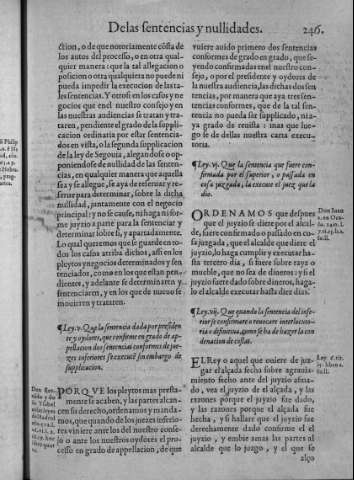 De las sentencias y nullidades. 246.
ction, o de que notoriamente cõsta de
los autos del processo, o en otra qual-
quier manera: que la tal allegacion o
posicion o otra qualquiera no puede ni
pueda impedir la execucion de las ta-
les sentencias. Y otrosi en los casos y ne
gocios que en el nuestro consejo y en
las nuestras audiencias se tratan y tra-
taren, pendiente el grado de la suppli-
cacion ordinaria por estar sentencia-
dos en vista, o la segunda supplicacion
de la ley de Segouia, alegandose o op-
poniendose de nullidad de las senten-
cias, en qualquier manera que aquella
sea y se allegue, se aya de reseruar y re-
serue para determinar, sobre la dicha
nullidad, juntamente con el negocio
principal: y no se cause, ni haga ni for-
me juyzio a parte para la sentenciar y
determinar sobre si, y apartadamente.
Lo qual queremos que se guarde en to
dos los casos arriba dichos, assi en los
pleytos y negocios determinados y sen
tenciados, como en los que estan pen-
dientes, y adelante se determinaren y
sentenciaren, y en los que de nueuo se
mouieren y trataren.
¶Ley.v. Que la sentencia dada por presiden
te y oydores, que confirme en grado de ap-
pellacion dos sentencias conformes de jue-
zes inferiores se execute sin embargo de
supplicacion.
PORQVE los pleytos mas presta-
mente se acaben, y las partes alcan-
cen su derecho, ordenamos y manda-
mos, que quando de los juezes inferio-
res viniere ante los del nuestro conse
jo o ante los nuestros oydores el pro-
cesso en grado de appellacion, de que
vuiere auido primero dos sentencias
conformes de grado en grado, que se-
yendo confirmadas en el nuestro con-
sejo, o por el presidente y oydores de
la nuestra audiencia, las dichas dos sen
tencias, por manera que aya tres sen-
tencias conformes, que de la tal sen-
tencia no pueda ser supplicado, ni a-
ya grado de reuista: mas que lue-
go se de dellas nuestra carta execu-
toria.
¶Ley.vj. Que la sentencia que fuere con-
firmada por el superior, o passada en
cosa juzgada, la execute el juez que la
dio.
ORDENAMOS que despues
que el juyzio se diere por el alcal-
de, si fuere confirmado o passado en co-
sa juzgada, que el alcalde que diere el
juyzio, lo haga cumplir y executar ha-
sta tercero dia, si fuere sobre rayz o
mueble, que no sea de dineros: y si el
juyzio fuere dado sobre dineros, haga-
lo el alcalde executar hasta diez dias.
¶Ley.vij. Que quando la sentencia del infe-
rior se confirmare o reuocare interlocuto-
ria o difinitiua, como se ha de hazer la con
denacion de costas.
EL Rey o aquel que ouiere de juz-
gar el alçada fecha sobre agraui-
amiento fecho ante del juyzio afina-
do, vea el juyzio de el alçada, y las
razones porque el juyzio fue dado,
y las razones porque el alçada fue
hecha, y si hallare que el juyzio fue
derechamente dado confirme el el
juyzio, y embie amas las partes al
alcalde que lo juzgo, y el que se
alço